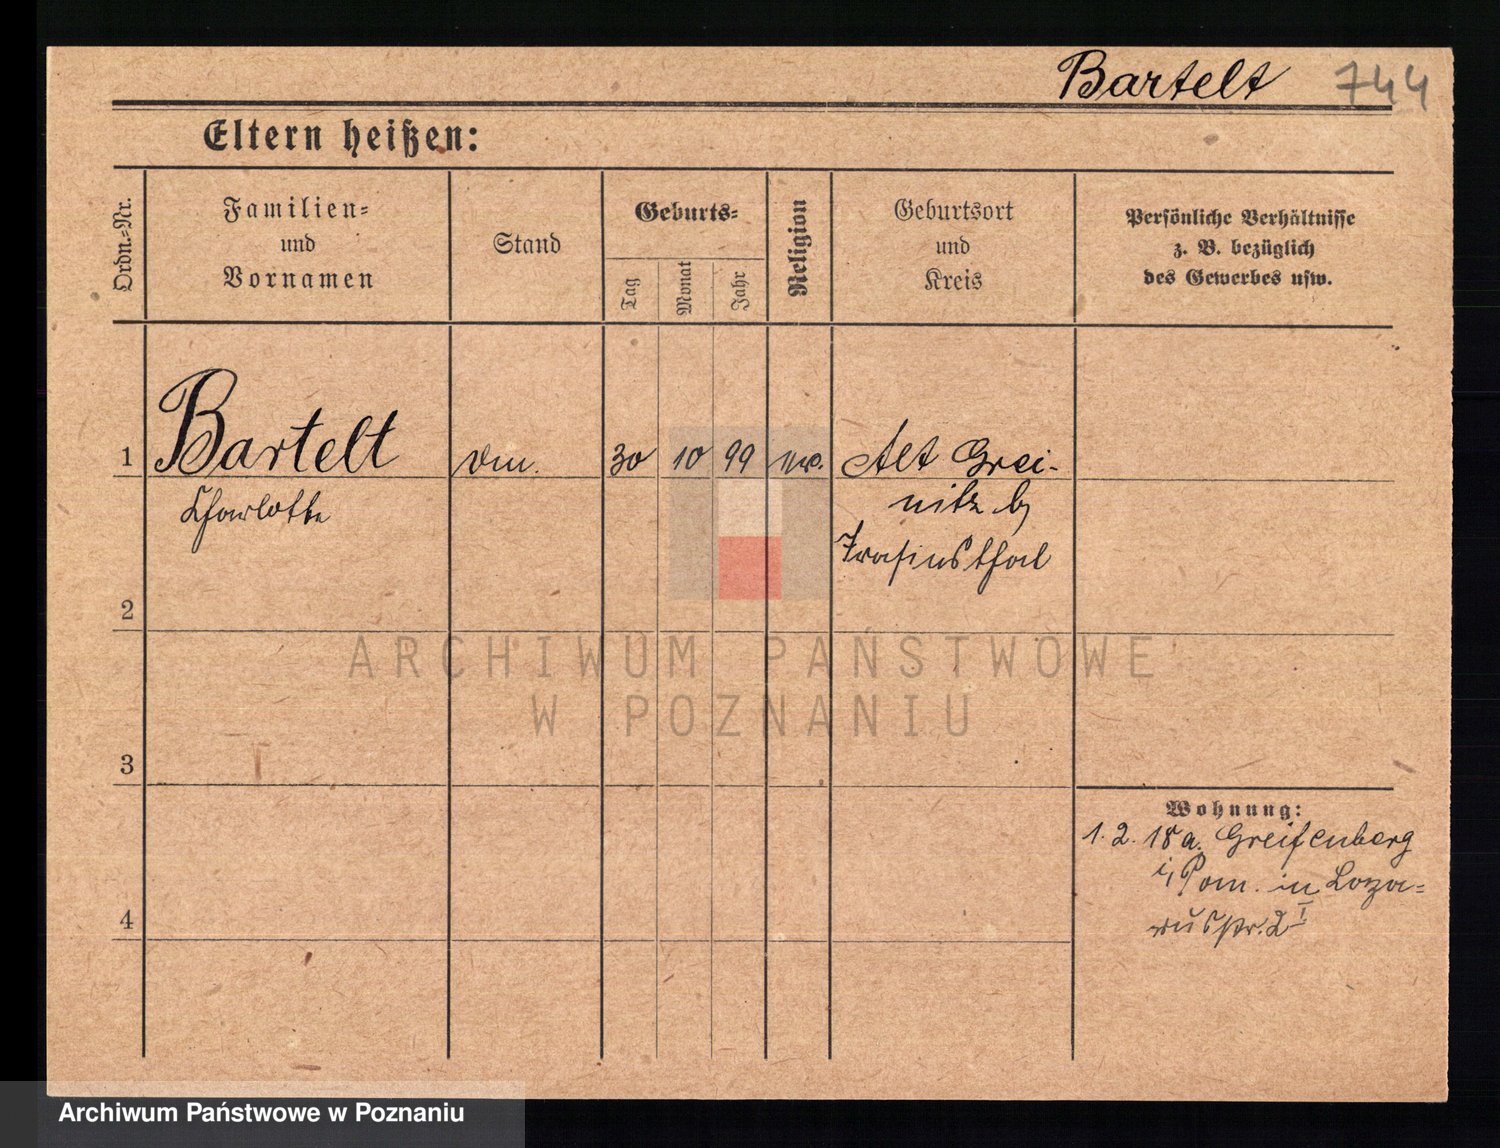 Bartelt 744
Eltern heißen:
Ordn.-Nr.
Familien-
und
Vornamen
Stand
Geburts-
Tag
Monat
Jahr
Religion
Geburtsort
und
Kreis
Persönliche Verhältnisse
z. B. bezüglich
des Gewerbes usw.
1 Bartelt 30 10 99 Alt Grei-
Charlotte
nitz b/
2
3
4
Wohnung:
1. 2. 18 a. Greifenberg
i/ Pom. in Laza-
russtr. 2 I
ARCHIWUM PAŃSTWOWE
W POZNANIU
Archiwum Państwowe w Poznaniu